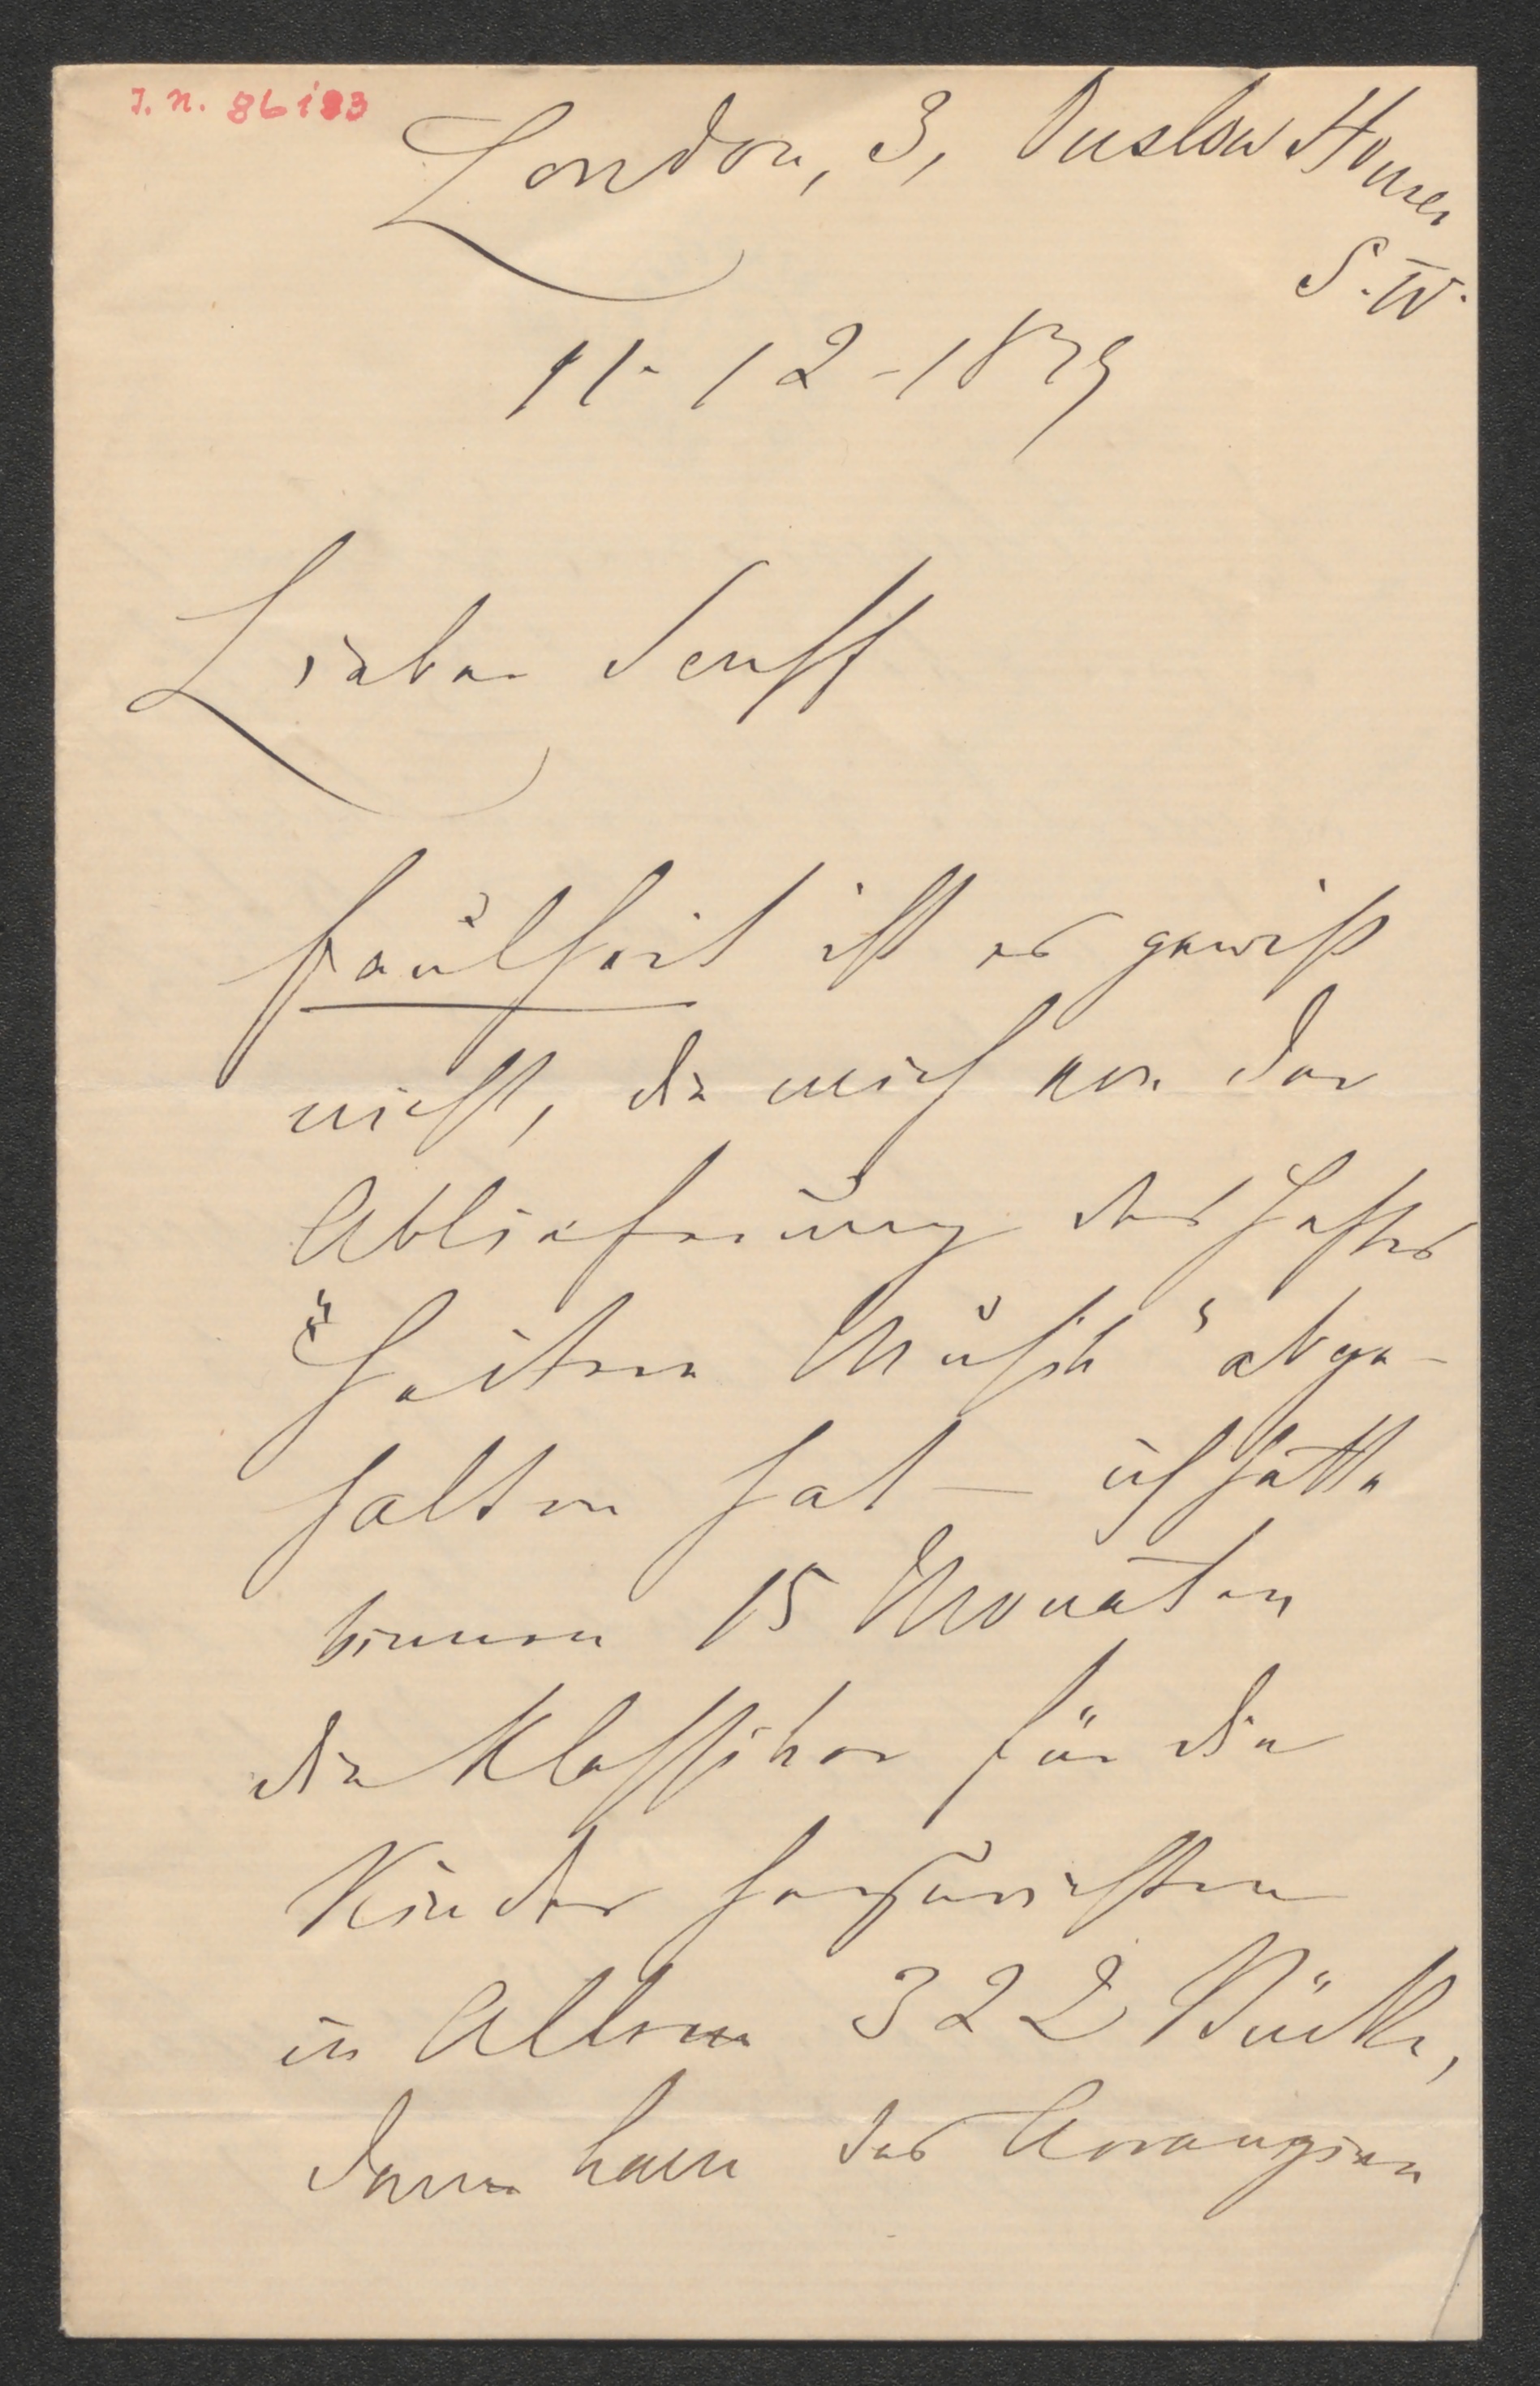 I.N. 86193
London, 3, Onslow Houses
S.W.
11-12-1879
Lieber Senff
Faulheit ist es gewiß
nicht, die mich von der
Ablieferung des Heftes
"Heitere Musik" abge-
halten hat — ich hatte
binnen 15 Monaten
die Klassiker für die
Kinder herzurichten
in Allem 322 Stücke,
dann kam das Arrangiren